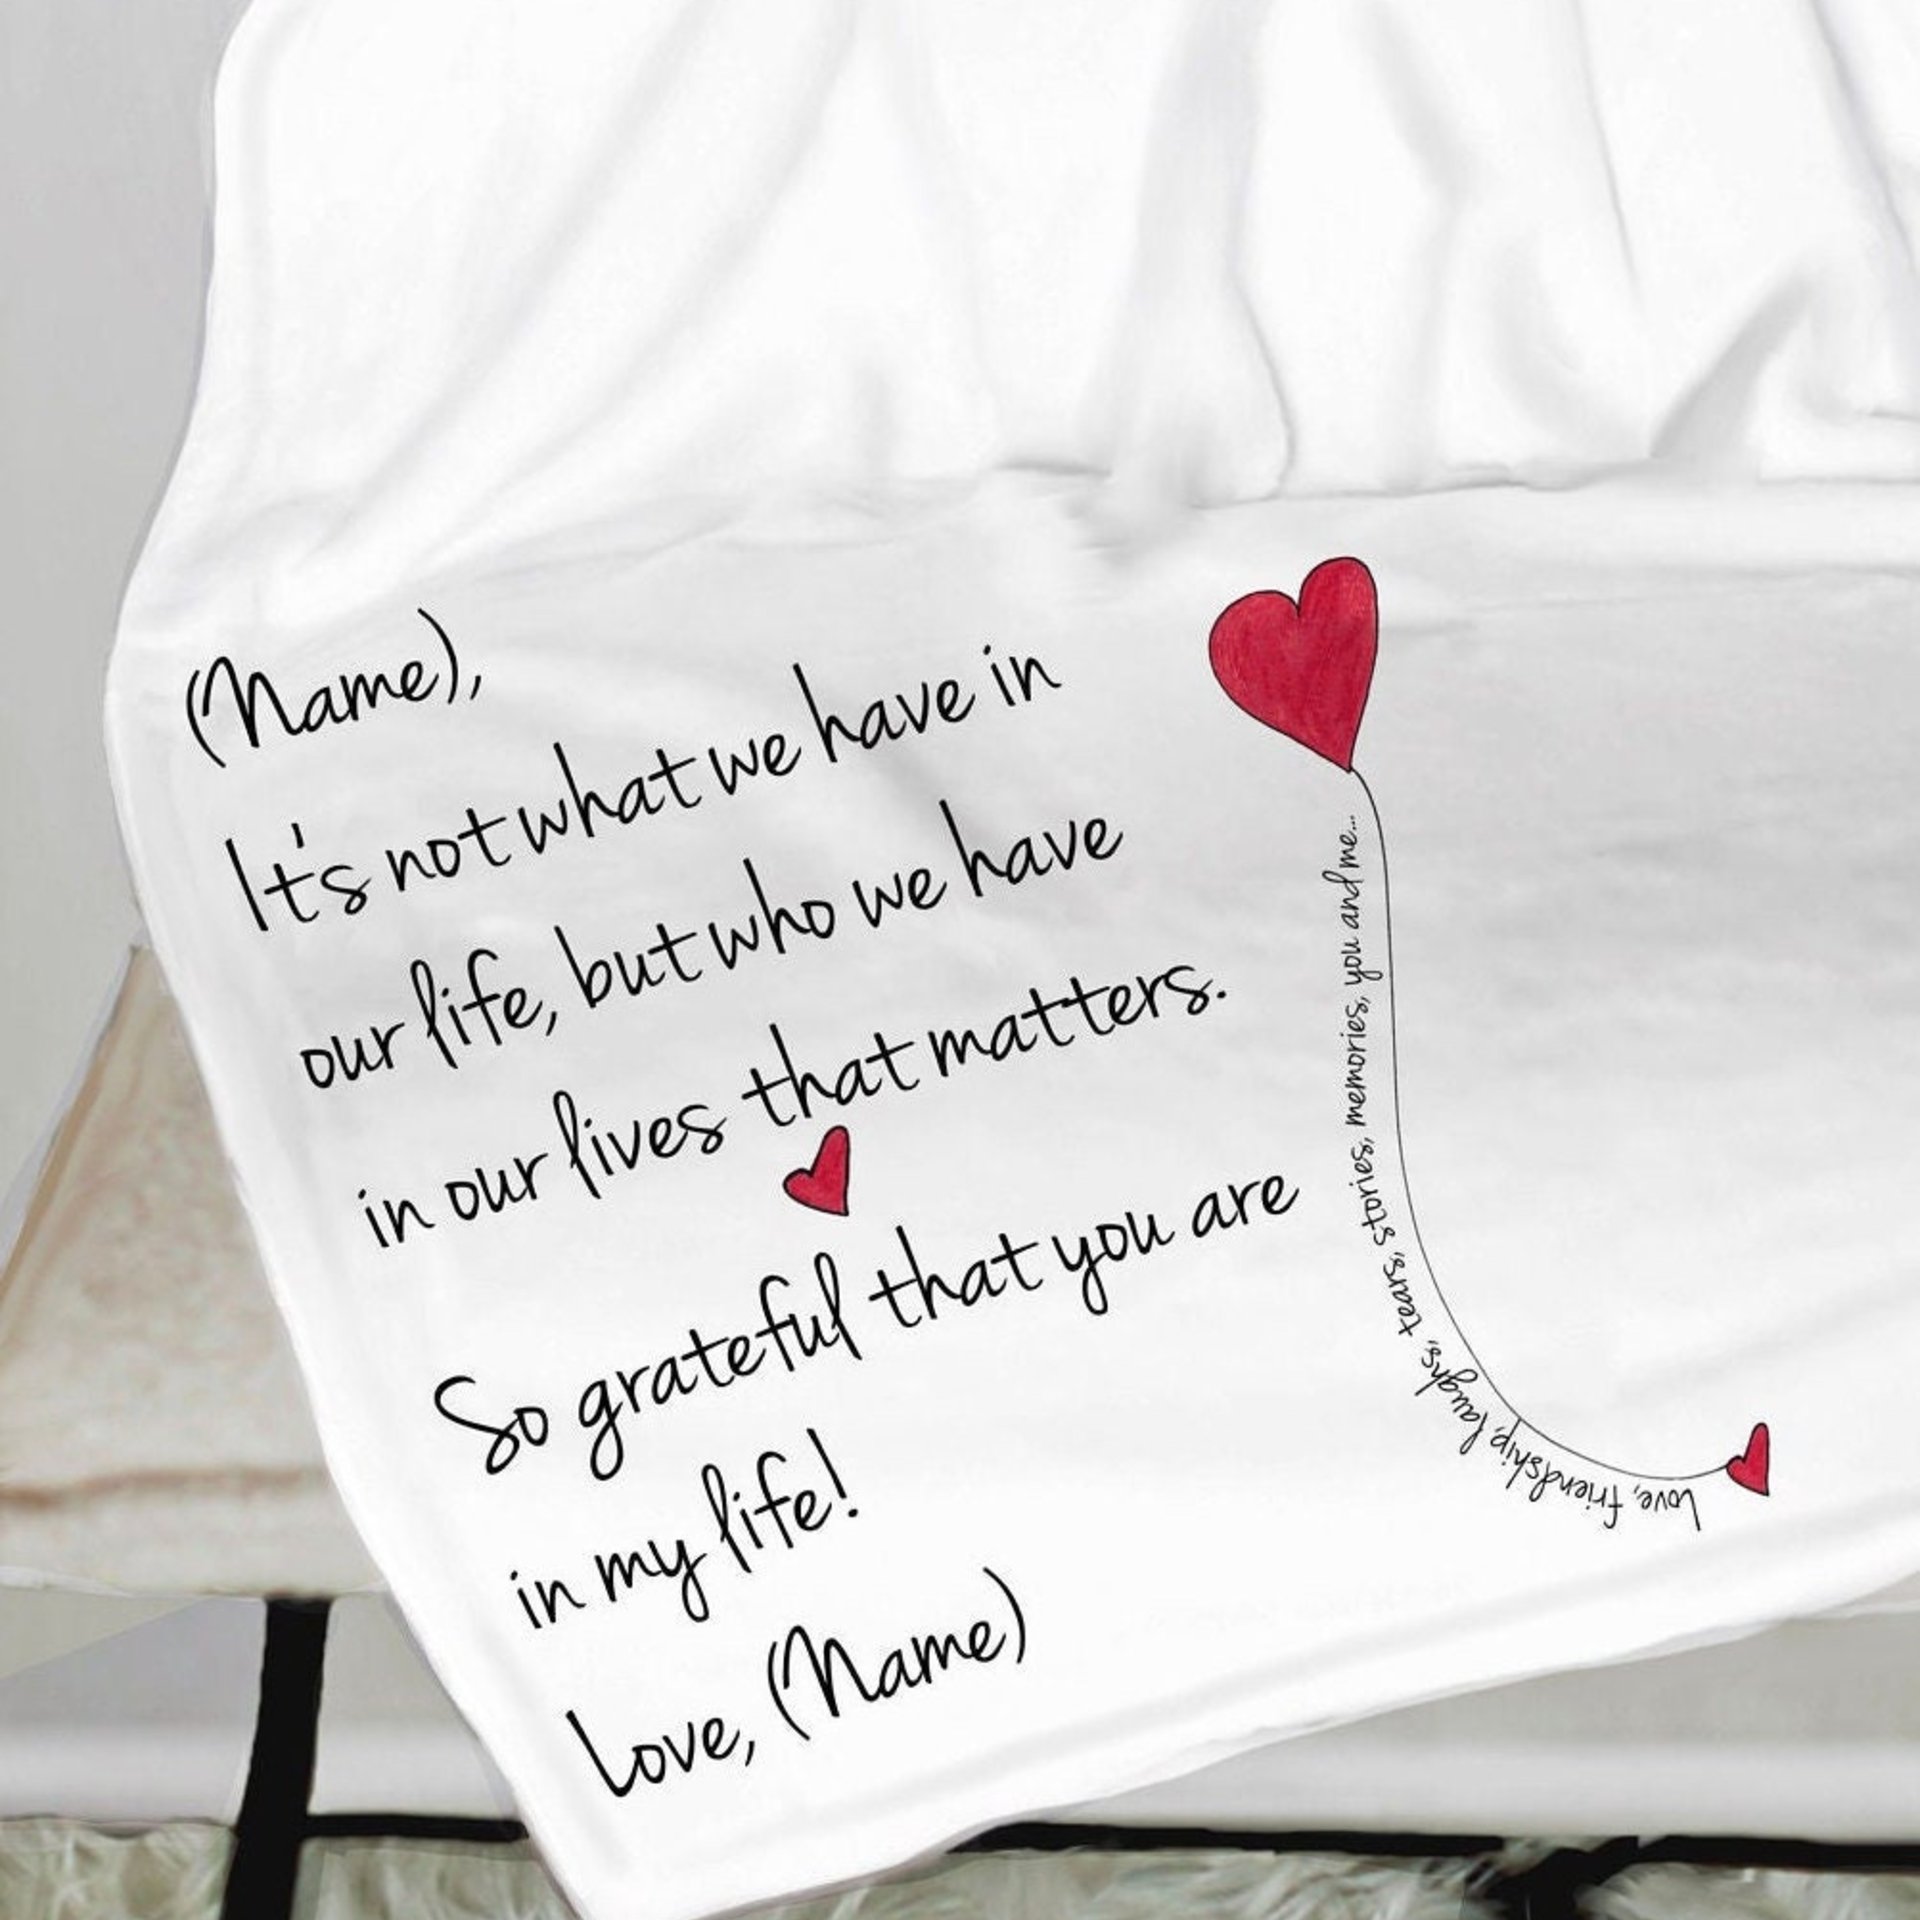 (Name),
It's not what we have in
our life, but who we have
in our lives that matters.
So grateful that you are
in my life!
Love, (Name)
love, friendship, laughs, tears, stories, memories, you and me...